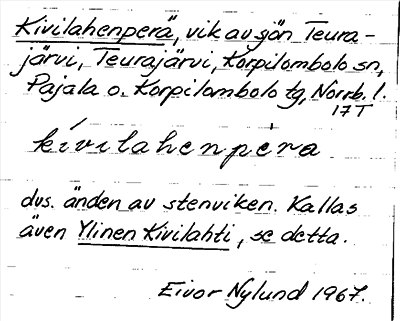 Kivilahenperä, vik av sjön Teura-
järvi, Teurajärvi, Korpilombolo sn,
Pajala o. Korpilombolo tg, Norrb. l.
17T
kívilahenpèra
dvs. änden av stenviken. Kallas
även Ylinen Kivilahti, se detta.
Eivor Nylund 1967.